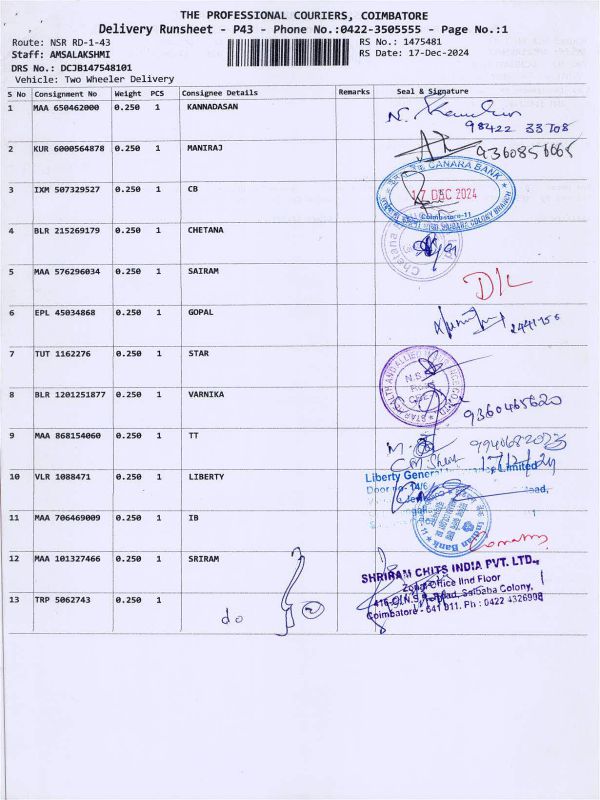 THE PROFESSIONAL COURIERS, COIMBATORE
Delivery Runsheet - P43 - Phone No.:0422-3505555 - Page No.:1
Route: NSR RD-1-43 RS No.: 1475481
Staff: AMSALAKSHMI RS Date: 17-Dec-2024
DRS No.: DCJB147548101
Vehicle: Two Wheeler Delivery
S No Consignment No Weight PCS Consignee Details Remarks Seal & Signature
1 MAA 650462000 0.250 1 KANNADASAN
98422 33708
2 KUR 6000564878 0.250 1 MANIRAJ
CANARA BANK
3 IXM 507329527 0.250 1 CB
17 DEC 2024
Coimbatore-11
4 BLR 215269179 0.250 1 CHETANA
Chetana
5 MAA 576296034 0.250 1 SAIRAM
D/L
6 EPL 45034868 0.250 1 GOPAL
7 TUT 1162276 0.250 1 STAR
STAR HEALTH AND ALLIED INSURANCE CO. LTD
8 BLR 1201251877 0.250 1 VARNIKA
9360465620
9 MAA 868154060 0.250 1 TT
9940682023
17/12/24
10 VLR 1088471 0.250 1 LIBERTY
Liberty General Insurance Limited
Door no
11 MAA 706469009 0.250 1 IB
Indian Bank
12 MAA 101327466 0.250 1 SRIRAM
SHRIRAM CHITS INDIA PVT. LTD.,
Zonal Office IInd Floor
13 TRP 5062743 0.250 1
Road, Saibaba Colony,
Coimbatore - 641 011. Ph : 0422 4326998
do
2